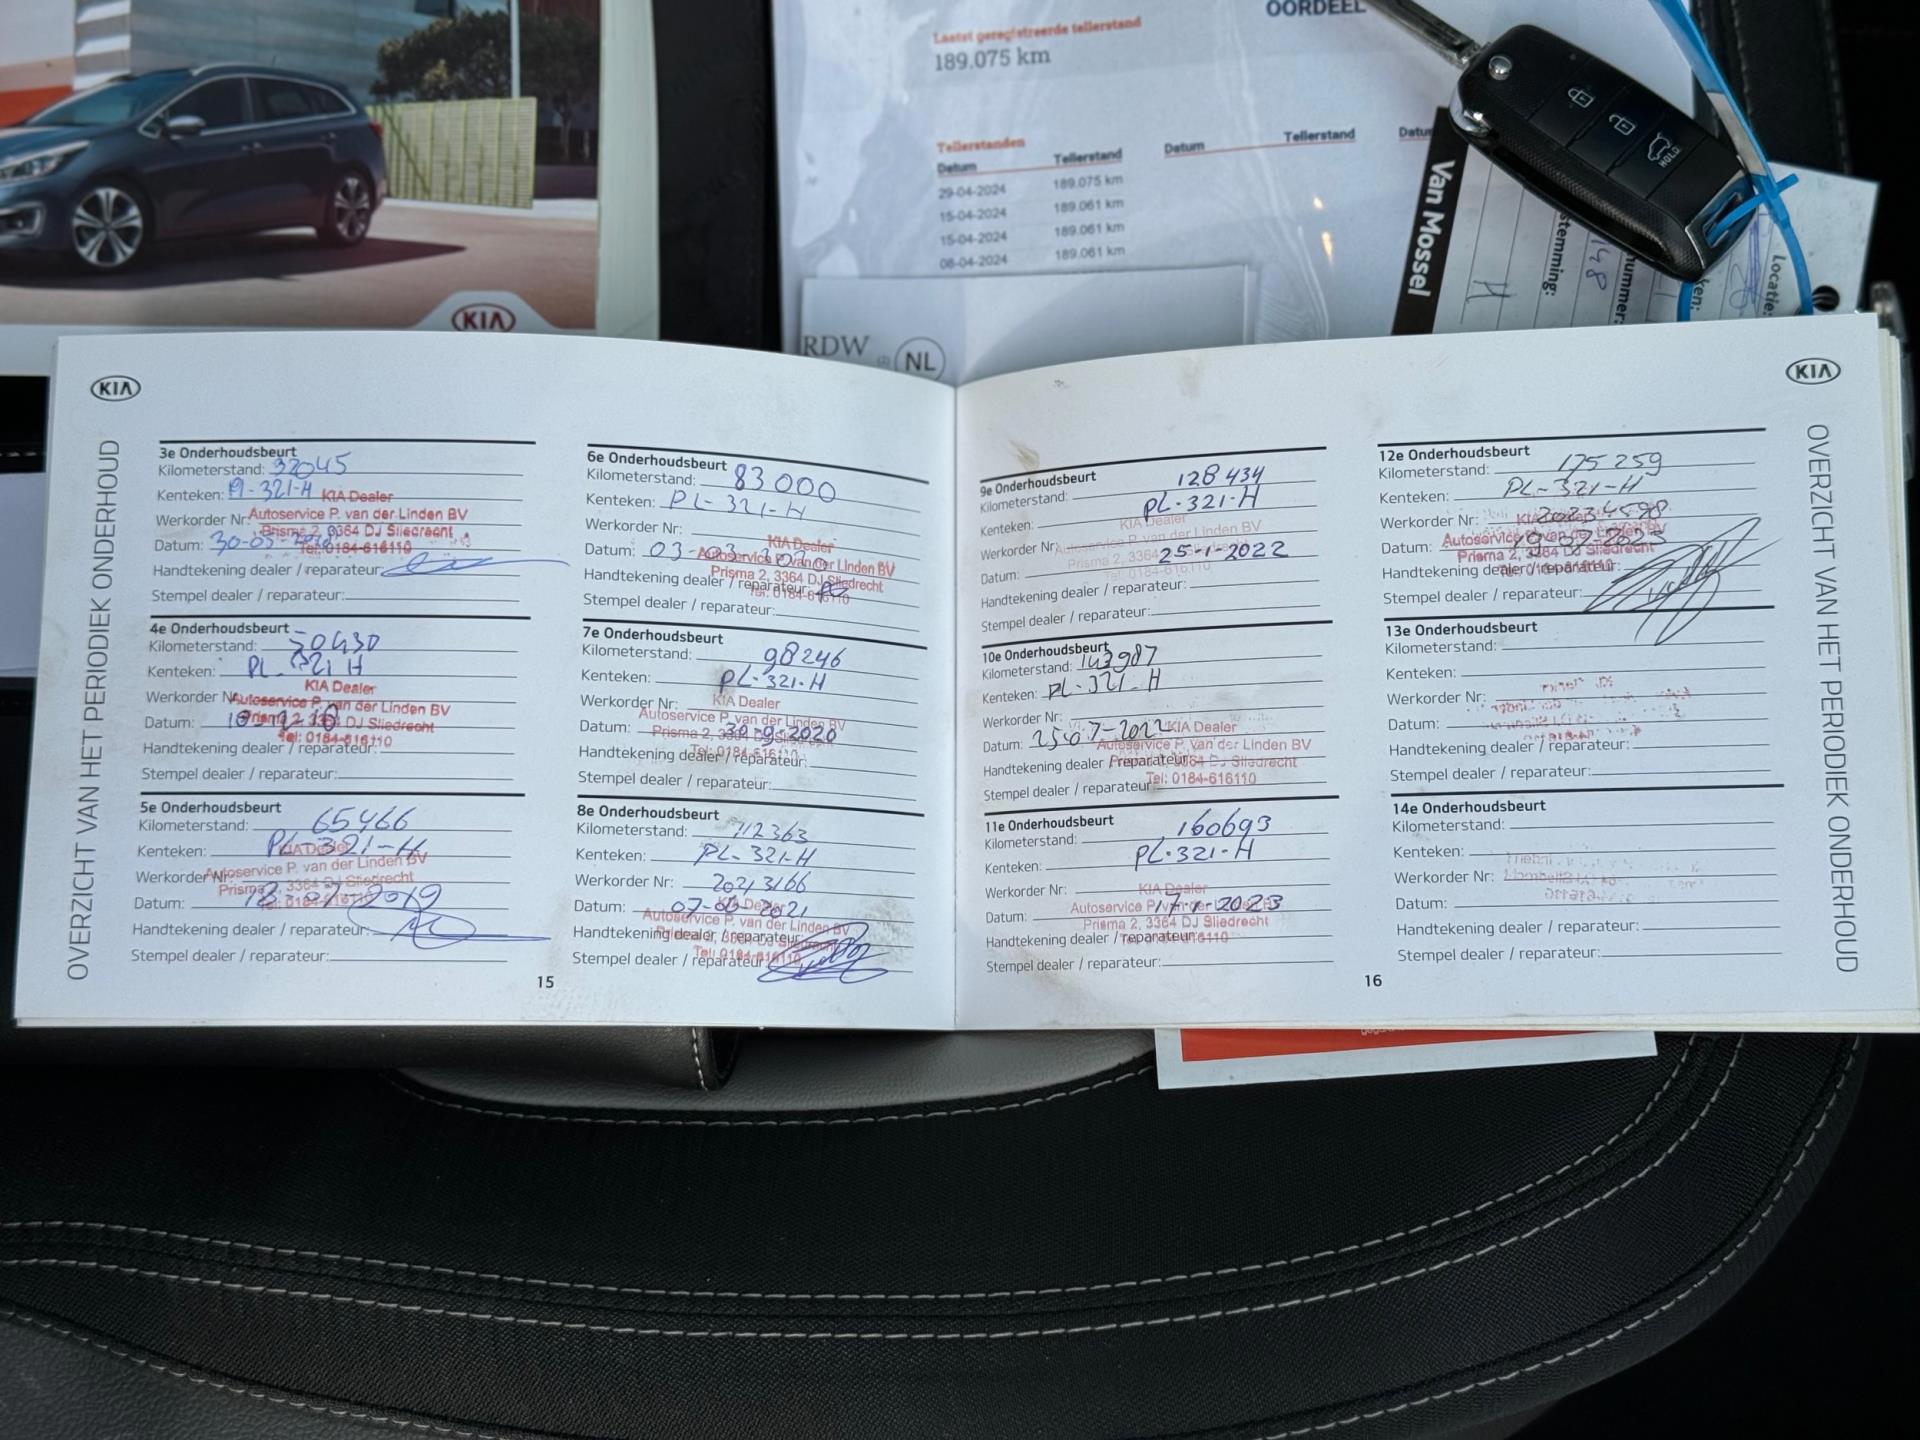 KIA
OORDEEL
Laatst geregistreerde tellerstand
189.075 km
Tellerstanden
Datum Tellerstand Datum Tellerstand
29-04-2024 189.075 km
15-04-2024 189.061 km
15-04-2024 189.061 km
08-04-2024 189.061 km
RDW
NL
HOLD
Van Mossel
Locatie:
KIA
OVERZICHT VAN HET PERIODIEK ONDERHOUD
3e Onderhoudsbeurt
Kilometerstand: 32045
Kenteken:
KIA Dealer
Werkorder Nr:
Autoservice P. van der Linden BV
Prisma 2, 3364 DJ Sliedrecht
Datum:
Tel: 0184-616110
Handtekening dealer / reparateur:
Stempel dealer / reparateur:
4e Onderhoudsbeurt
Kilometerstand: 50430
Kenteken: PL-321 H
KIA Dealer
Werkorder Nr:
Autoservice P. van der Linden BV
Datum:
Prisma 2, 3364 DJ Sliedrecht
Tel: 0184-616110
Handtekening dealer / reparateur:
Stempel dealer / reparateur:
5e Onderhoudsbeurt
Kilometerstand: 65466
Kenteken: PL-321-H
KIA Dealer
Autoservice P. van der Linden BV
Werkorder Nr:
Prisma 2, 3364 DJ Sliedrecht
Datum:
Tel: 0184-616110
Handtekening dealer / reparateur:
Stempel dealer / reparateur:
6e Onderhoudsbeurt
Kilometerstand: 83000
Kenteken: PL-321-H
Werkorder Nr:
KIA Dealer
Datum:
Autoservice P. van der Linden BV
Prisma 2, 3364 DJ Sliedrecht
Handtekening dealer / reparateur:
Tel: 0184-616110
Stempel dealer / reparateur:
7e Onderhoudsbeurt
Kilometerstand: 98246
Kenteken: PL-321-H
Werkorder Nr:
KIA Dealer
Autoservice P. van der Linden BV
Datum: 30-9-2020
Prisma 2, 3364 DJ Sliedrecht
Tel: 0184-616110
Handtekening dealer / reparateur:
Stempel dealer / reparateur:
8e Onderhoudsbeurt
Kilometerstand: 112363
Kenteken: PL-321-H
Werkorder Nr: 20213166
Datum:
KIA Dealer
Autoservice P. van der Linden BV
Handtekening dealer / reparateur:
Prisma 2, 3364 DJ Sliedrecht
Tel: 0184-616110
Stempel dealer / reparateur:
15
KIA
9e Onderhoudsbeurt
Kilometerstand: 128434
Kenteken: PL-321-H
KIA Dealer
Autoservice P. van der Linden BV
Werkorder Nr:
Prisma 2, 3364 DJ Sliedrecht
Datum: 25-1-2022
Tel: 0184-616110
Handtekening dealer / reparateur:
Stempel dealer / reparateur:
10e Onderhoudsbeurt
Kilometerstand: 143987
Kenteken: PL-321-H
Werkorder Nr:
KIA Dealer
Datum:
Autoservice P. van der Linden BV
Handtekening dealer / reparateur:
Prisma 2, 3364 DJ Sliedrecht
Tel: 0184-616110
Stempel dealer / reparateur:
11e Onderhoudsbeurt
Kilometerstand: 160693
Kenteken: PL-321-H
Werkorder Nr:
KIA Dealer
Autoservice P. van der Linden BV
Datum: 17-1-2023
Prisma 2, 3364 DJ Sliedrecht
Handtekening dealer / reparateur:
Tel: 0184-616110
Stempel dealer / reparateur:
12e Onderhoudsbeurt
Kilometerstand: 175259
Kenteken: PL-321-H
Werkorder Nr: 20234598
KIA Dealer
Autoservice P. van der Linden BV
Datum:
Prisma 2, 3364 DJ Sliedrecht
Handtekening dealer / reparateur:
Tel: 0184-616110
Stempel dealer / reparateur:
13e Onderhoudsbeurt
Kilometerstand:
Kenteken:
Werkorder Nr:
Datum:
Handtekening dealer / reparateur:
Stempel dealer / reparateur:
14e Onderhoudsbeurt
Kilometerstand:
Kenteken:
Werkorder Nr:
Datum:
Handtekening dealer / reparateur:
Stempel dealer / reparateur:
16
OVERZICHT VAN HET PERIODIEK ONDERHOUD